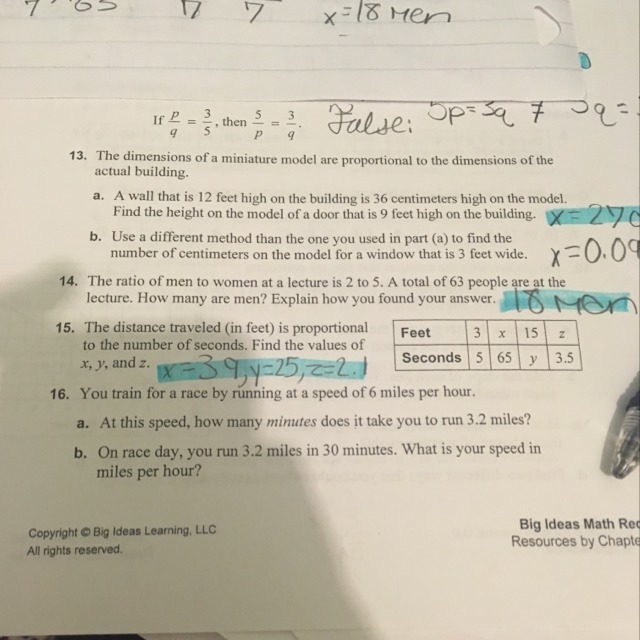 x=18 men
If p/q = 3/5, then 5/p = 3/q. False: 5p=3q ≠
13. The dimensions of a miniature model are proportional to the dimensions of the
actual building.
a. A wall that is 12 feet high on the building is 36 centimeters high on the model.
Find the height on the model of a door that is 9 feet high on the building. x=27c
b. Use a different method than the one you used in part (a) to find the
number of centimeters on the model for a window that is 3 feet wide. x=0.09
14. The ratio of men to women at a lecture is 2 to 5. A total of 63 people are at the
lecture. How many are men? Explain how you found your answer. 18 men
15. The distance traveled (in feet) is proportional
to the number of seconds. Find the values of
x, y, and z. x=39, y=25, z=2.1
Feet 3 x 15 z
Seconds 5 65 y 3.5
16. You train for a race by running at a speed of 6 miles per hour.
a. At this speed, how many minutes does it take you to run 3.2 miles?
b. On race day, you run 3.2 miles in 30 minutes. What is your speed in
miles per hour?
Copyright © Big Ideas Learning, LLC
All rights reserved.
Big Ideas Math Rec
Resources by Chapte